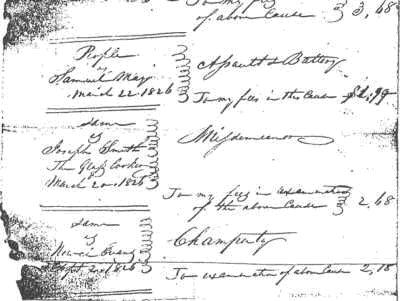 To my fees in
of above Cause } 3,68
People
vs
Samuel May
March 22 1826
Assault & Battery
To my fees in the Cause $1.99
same
vs
Joseph Smith
The Glass looker
March 20, 1826
Misdemeanor
To my fees in examination
of the above Cause } 2,68
same
vs
Sept 2, 1826
Champerty
To examination of above Cause 2,18